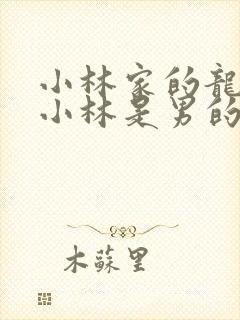 小林家的龍
小林是男的
木蘇里